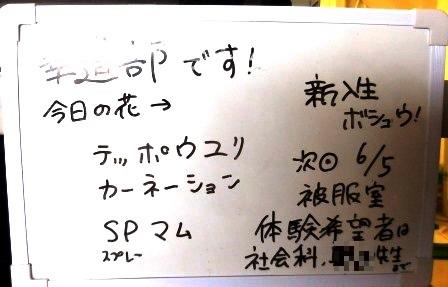 華道部です!
今日の花→
テッポウユリ
カーネーション
SPマム
スプレー
新入生
ボシュウ!
次回 6/5
被服室
体験希望者は
社会科、先生まで